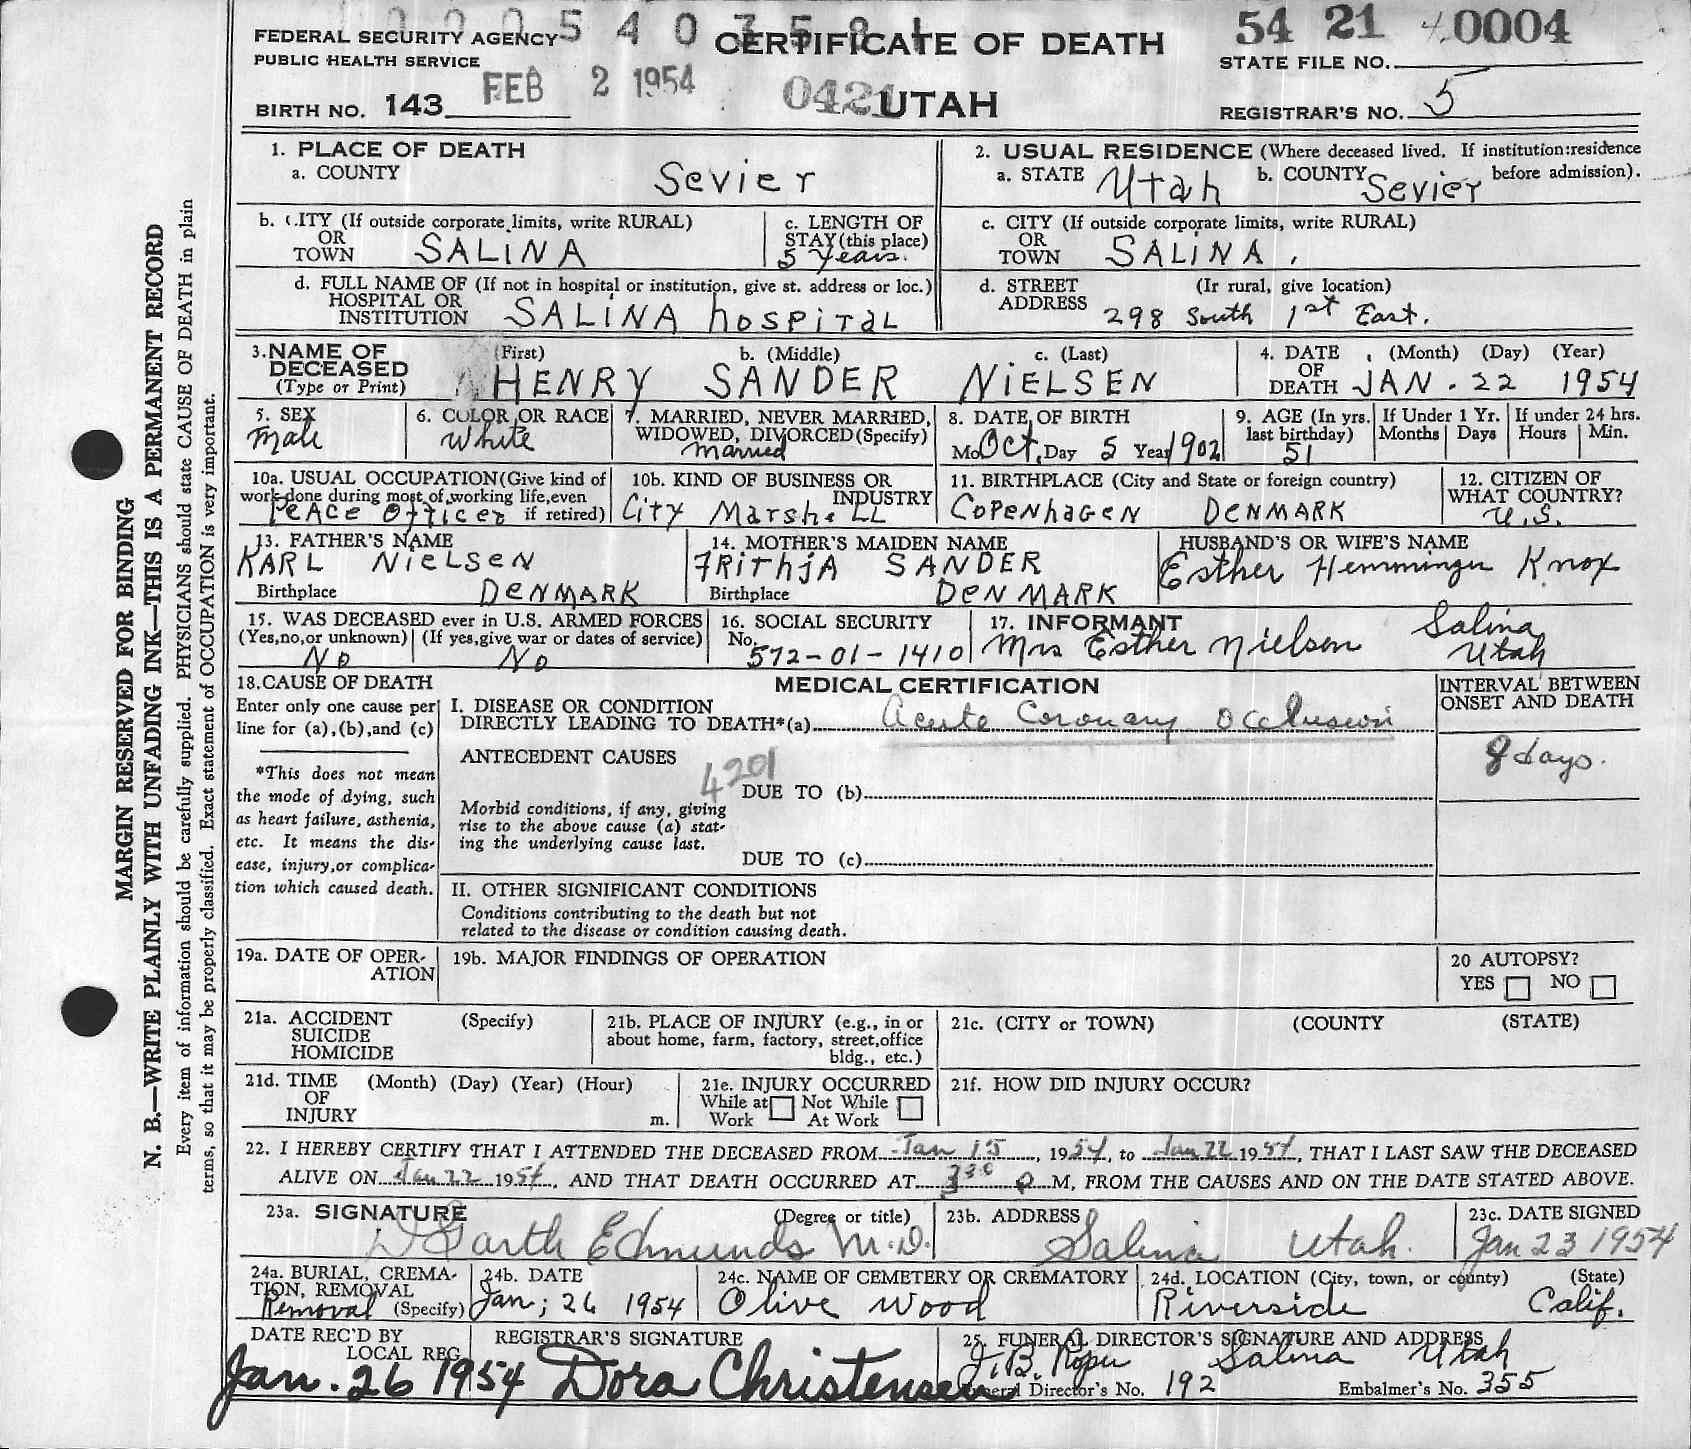 0 0 0 5 4 0 3 5 8 1
FEDERAL SECURITY AGENCY
PUBLIC HEALTH SERVICE
CERTIFICATE OF DEATH
54 21 4.0004
STATE FILE NO.
BIRTH NO. 143
FEB 2 1954
0421
UTAH
REGISTRAR'S NO. 5
MARGIN RESERVED FOR BINDING
N. B.—WRITE PLAINLY WITH UNFADING INK—THIS IS A PERMANENT RECORD
Every item of information should be carefully supplied. PHYSICIANS should state CAUSE OF DEATH in plain
terms, so that it may be properly classified. Exact statement of OCCUPATION is very important.
1. PLACE OF DEATH
a. COUNTY Sevier
2. USUAL RESIDENCE (Where deceased lived. If institution:residence
a. STATE Utah b. COUNTY Sevier before admission).
b. CITY (If outside corporate limits, write RURAL)
OR
TOWN SALINA
c. LENGTH OF
STAY (this place)
5 Years.
c. CITY (If outside corporate limits, write RURAL)
OR
TOWN SALINA,
d. FULL NAME OF (If not in hospital or institution, give st. address or loc.)
HOSPITAL OR
INSTITUTION SALINA hospital
d. STREET (Ir rural, give location)
ADDRESS 298 South 1st East.
3. NAME OF
DECEASED
(Type or Print)
(First) b. (Middle) c. (Last)
HENRY SANDER NIELSEN
4. DATE (Month) (Day) (Year)
OF
DEATH JAN. 22 1954
5. SEX
Male
6. COLOR OR RACE
White
7. MARRIED, NEVER MARRIED,
WIDOWED, DIVORCED (Specify)
Married
8. DATE OF BIRTH
Mo Oct. Day 5 Year 1902
9. AGE (In yrs.
last birthday)
51
If Under 1 Yr.
Months Days
If under 24 hrs.
Hours Min.
10a. USUAL OCCUPATION (Give kind of
work done during most of working life, even
Peace Officer if retired)
10b. KIND OF BUSINESS OR
INDUSTRY
City Marshall
11. BIRTHPLACE (City and State or foreign country)
Copenhagen DENMARK
12. CITIZEN OF
WHAT COUNTRY?
U.S.
13. FATHER'S NAME
KARL NIELSEN
Birthplace DENMARK
14. MOTHER'S MAIDEN NAME
FRIThjA SANDER
Birthplace DENMARK
HUSBAND'S OR WIFE'S NAME
Esther Hemminger Knox
15. WAS DECEASED ever in U.S. ARMED FORCES
(Yes,no,or unknown) (If yes,give war or dates of service)
No No
16. SOCIAL SECURITY
No. 572-01-1410
17. INFORMANT
Mrs Esther Nielsen Salina
Utah
18. CAUSE OF DEATH
Enter only one cause per
line for (a),(b),and (c)
*This does not mean
the mode of dying, such
as heart failure, asthenia,
etc. It means the dis-
ease, injury,or complica-
tion which caused death.
MEDICAL CERTIFICATION
I. DISEASE OR CONDITION
DIRECTLY LEADING TO DEATH*(a) Acute Coronary Occlusion
ANTECEDENT CAUSES
4201
DUE TO (b)
Morbid conditions, if any, giving
rise to the above cause (a) stat-
ing the underlying cause last.
DUE TO (c)
II. OTHER SIGNIFICANT CONDITIONS
Conditions contributing to the death but not
related to the disease or condition causing death.
INTERVAL BETWEEN
ONSET AND DEATH
8 days.
19a. DATE OF OPER-
ATION
19b. MAJOR FINDINGS OF OPERATION
20 AUTOPSY?
YES NO
21a. ACCIDENT (Specify)
SUICIDE
HOMICIDE
21b. PLACE OF INJURY (e.g., in or
about home, farm, factory, street,office
bldg., etc.)
21c. (CITY or TOWN) (COUNTY (STATE)
21d. TIME (Month) (Day) (Year) (Hour)
OF
INJURY m.
21e. INJURY OCCURRED
While at Not While
Work At Work
21f. HOW DID INJURY OCCUR?
22. I HEREBY CERTIFY THAT I ATTENDED THE DECEASED FROM Jan 15, 1954, to Jan 22 1954, THAT I LAST SAW THE DECEASED
ALIVE ON Jan 22 1954, AND THAT DEATH OCCURRED AT 3:30 P M, FROM THE CAUSES AND ON THE DATE STATED ABOVE.
23a. SIGNATURE (Degree or title)
D Garth Edmunds M.D.
23b. ADDRESS
Salina Utah.
23c. DATE SIGNED
Jan 23 1954
24a. BURIAL, CREMA-
TION, REMOVAL
Removal (Specify)
24b. DATE
Jan; 26 1954
24c. NAME OF CEMETERY OR CREMATORY
Olive Wood
24d. LOCATION (City, town, or county) (State)
Riverside Calif.
DATE REC'D BY
LOCAL REG
Jan. 26 1954
REGISTRAR'S SIGNATURE
Dora Christensen
25. FUNERAL DIRECTOR'S SIGNATURE AND ADDRESS
Roper Salina Utah
Funeral Director's No. 192 Embalmer's No. 355